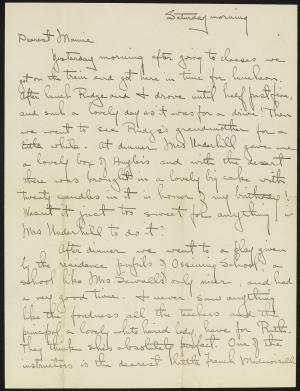 Saturday morning
Dearest Mamie
Yesterday morning after going to classes we
got on the train and got here in time for luncheon.
After lunch Rudge and I drove until half past five,
and such a lovely day as it was for a drive! Then
we went to see Rudge's grandmother for a
little while. At dinner Mrs Underhill gave me
a lovely box of Huyler's and with the desert
there was brought in a lovely big cake with
twenty candles in it in honor of my birthday!
Wasn't it just too sweet for anything in
Mrs Underhill to do it?
After dinner we went to a play given
by the residence pupils of Ossining School, a
school like Mrs Sewall's only nicer, and had
a very good time. I never saw anything
like the fondness all the teachers and the
principal, a lovely white haired lady, have for Ruth.
They think she's absolutely perfect. One of the
instructors is the dearest little French Mademoiselle